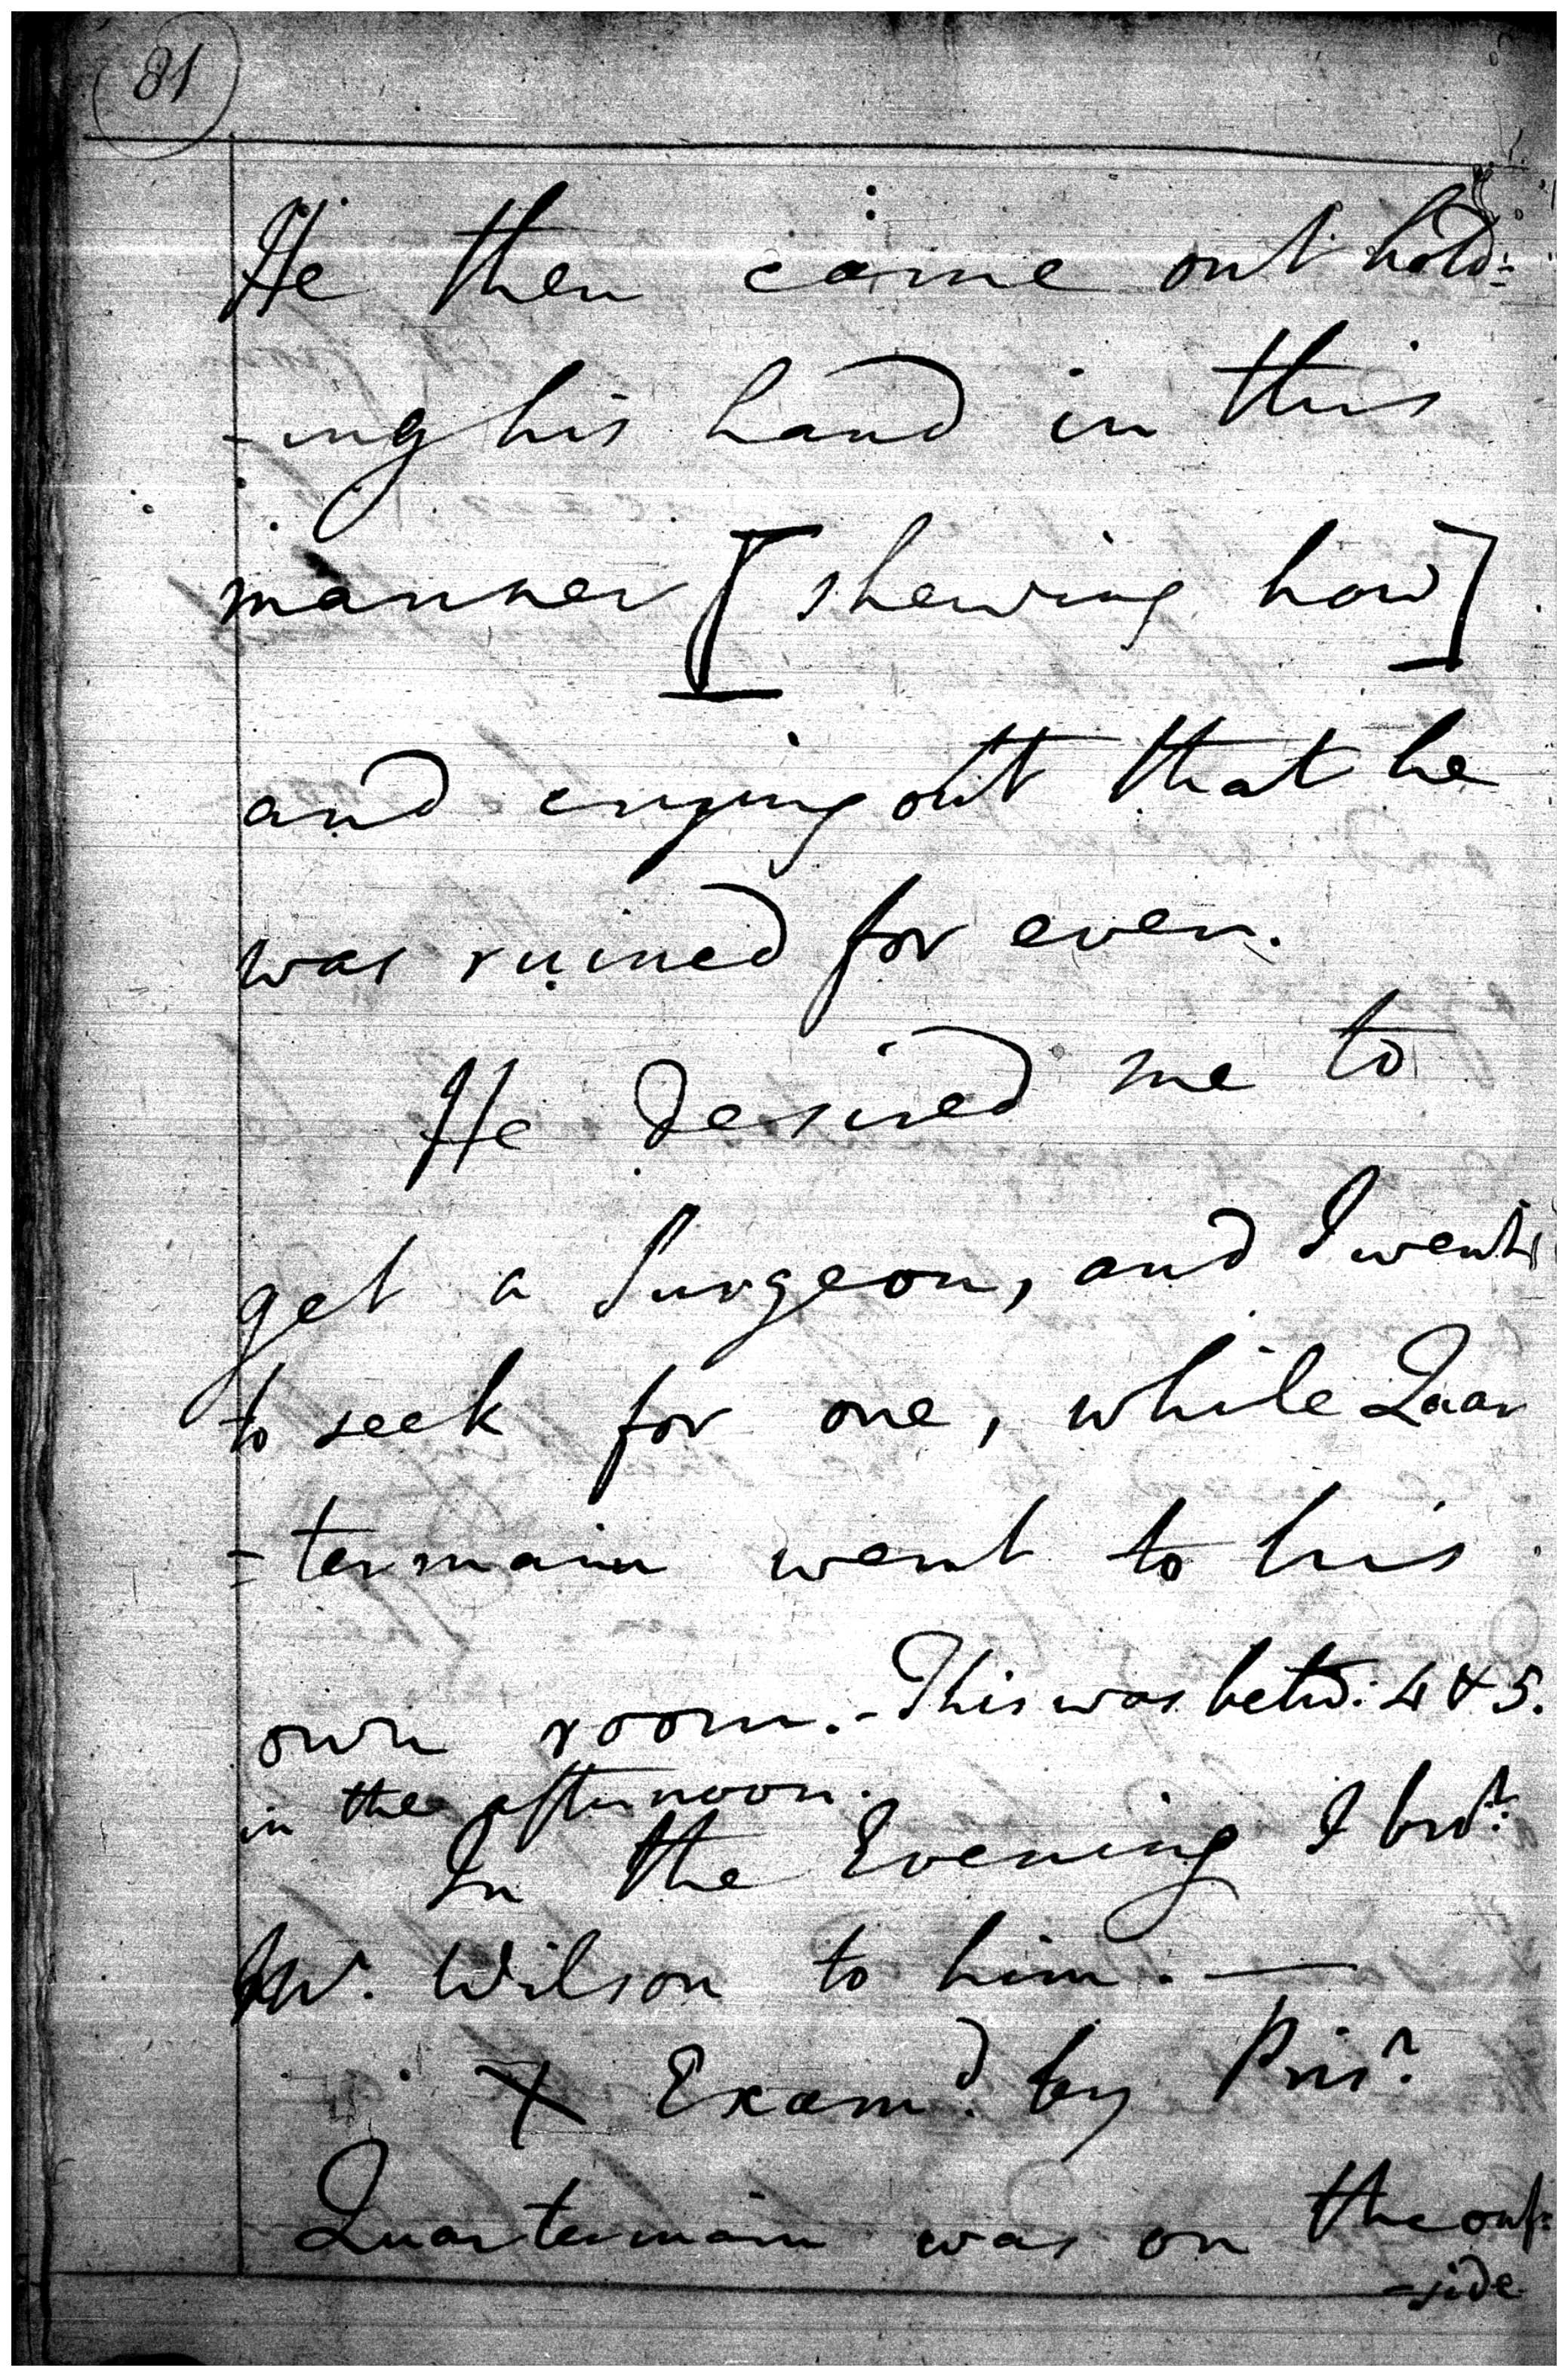 81
He then came out hold=
-ing his hand in this
manner [shewing how]
and crying out that he
was ruined for ever.
He desired me to
get a Surgeon, and I went
to seek for one, while Quar
=termain went to his
own room.- This was betw: 4 & 5.
in the afternoon.
In the Evening I bro.t
Mr. Wilson to him. —
X Exam.d by Pris.r
Quartermain was on the out=
-side